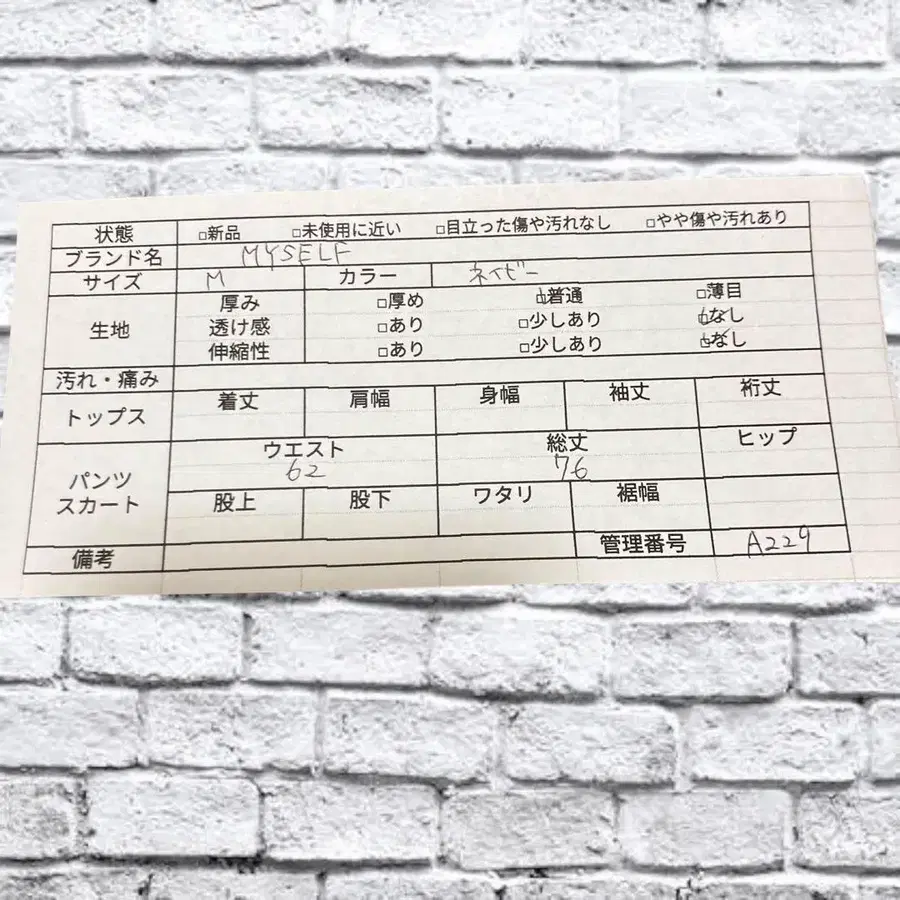 状態 □新品 □未使用に近い □目立った傷や汚れなし □やや傷や汚れあり
ブランド名 MYSELF
サイズ M カラー ネイビー
生地 厚み □厚め □普通 □薄目
透け感 □あり □少しあり □なし
伸縮性 □あり □少しあり □なし
汚れ・痛み
トップス 着丈 肩幅 身幅 袖丈 裄丈
パンツ スカート ウエスト 総丈 ヒップ
62 76
股上 股下 ワタリ 裾幅
備考 管理番号 A229